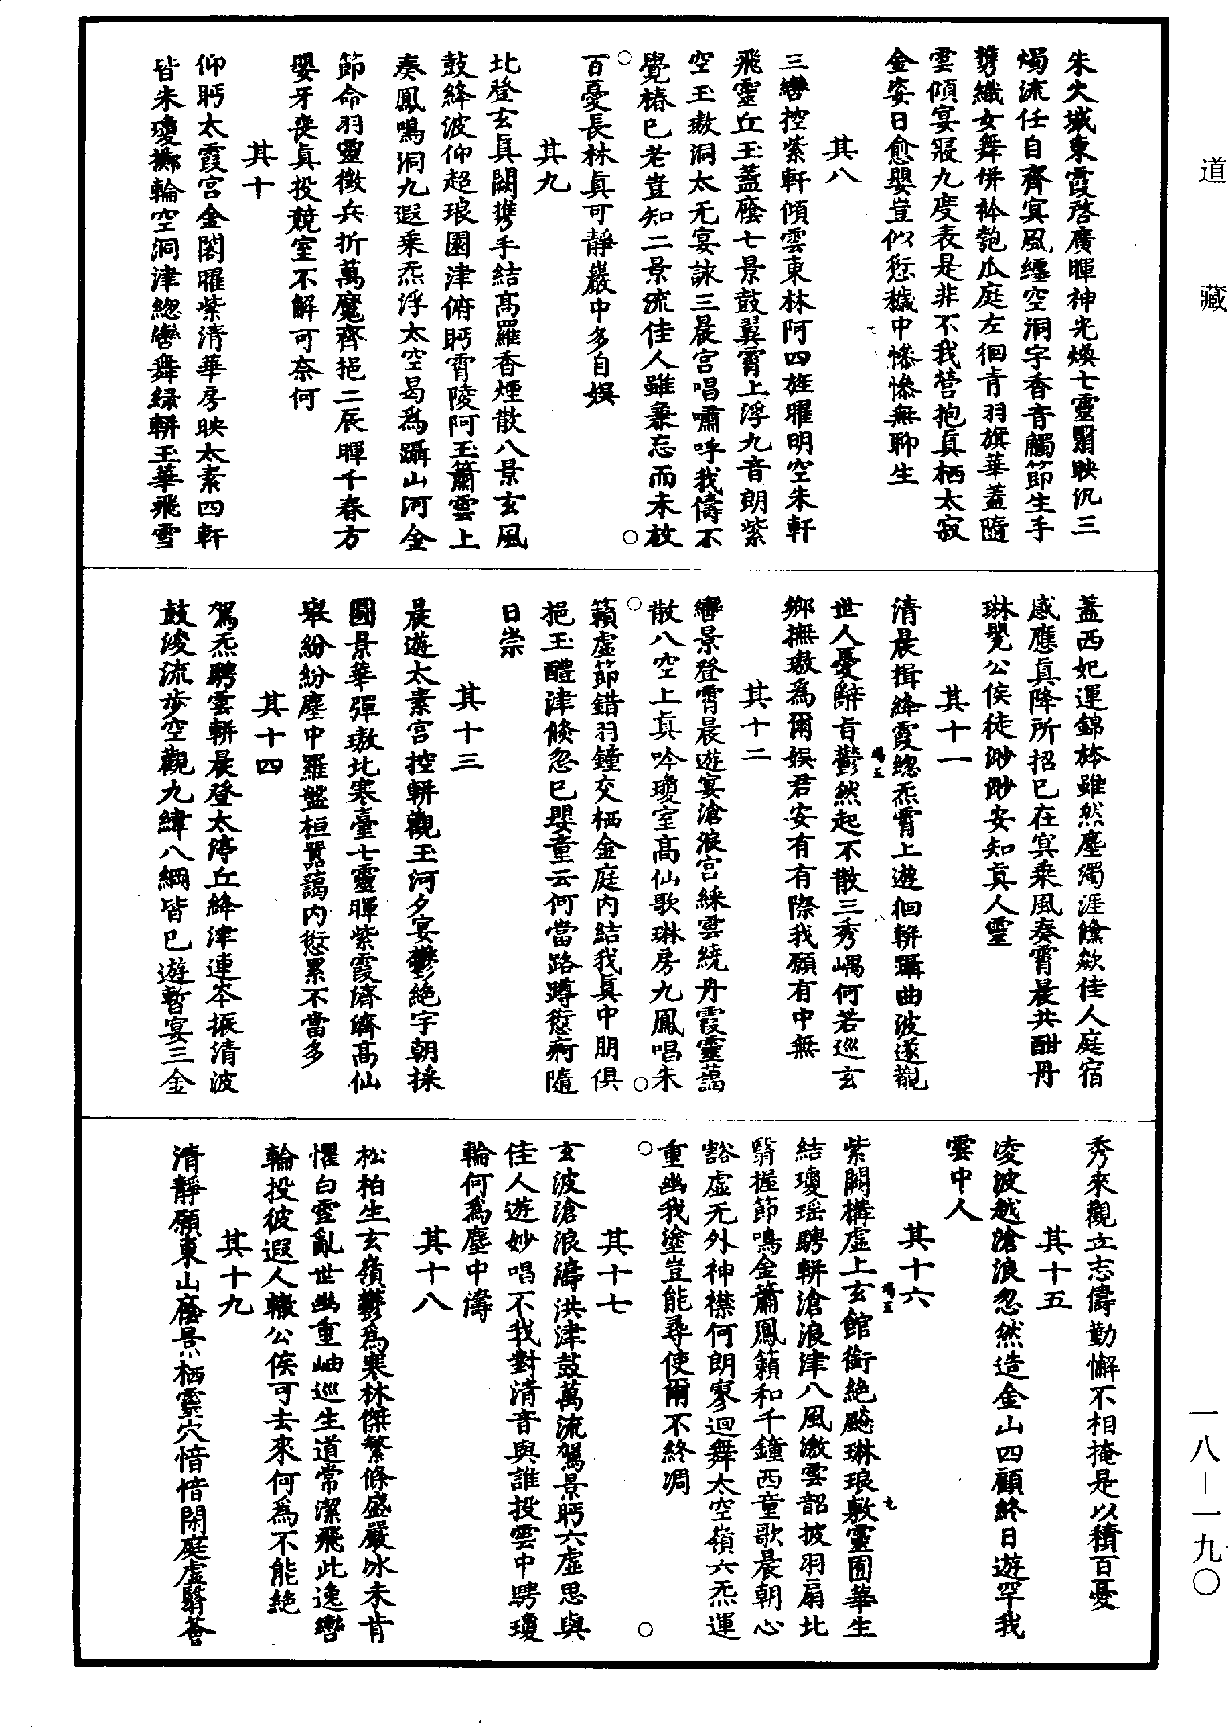 道藏
朱火城東霞啓廣暉神光煥七靈翳映汎三
燭流任自齊冥風纏空洞宇香音觸節生手
携織女舞倂衿匏瓜庭左徊青羽旗華蓋隨
雲傾宴寢九度表是非不我營抱真栖太寂
金姿日愈嬰豈似愆穢中慘慘無聊生
其八
三轡控紫軒傾雲東林阿四旌曜明空朱軒
飛靈丘玉蓋廕七景鼓翼霄上浮九音朗紫
空玉璈洞太无宴詠三晨宮唱嘯呼我儔不
覺椿已老豈知二景流佳人雖兼忘而未放
百憂長林真可靜巖中多自娛
其九
北登玄真闕攜手結高羅香煙散八景玄風
鼓絳波仰超琅園津俯眄霄陵阿玉簫雲上
奏鳳鳴洞九遐乘炁浮太空曷為躡山河金
節命羽靈徵兵折萬魔齊挹二辰暉千春方
嬰牙喪真投競室不解可奈何
其十
仰眄太霞宮金閣曜紫清華房映太素四軒
皆朱瓊擲輪空洞津總轡舞綠軿玉華飛雪
蓋西妃運錦旍雖然塵濁涯儵欻佳人庭宿
感應真降所招已在冥乘風奏霄晨共酣丹
琳甖公侯徒眇眇安知真人靈
其十一
清晨揖絳霞總炁霄上遊徊軿躡曲波遂觀
世人憂辭旨鬱然起不散三秀嵎何若巡玄
鄉撫璈為爾娛君安有有際我願有中無
其十二
轡景登霄晨遊宴滄浪宮綵雲繞丹霞靈藹
散八空上真吟瓊室高仙歌琳房九鳳唱朱
籟虛節錯羽鐘交栖金庭內結我真中朋俱
挹玉醴津倏忽已嬰童云何當路蹲愆痾隨
日崇
其十三
晨遊太素宮控軿觀玉河夕宴鬱絕宇朝採
圓景華彈璈北寒臺七靈暉紫霞濟濟高仙
舉紛紛塵中羅盤桓囂藹內愆累不當多
其十四
駕炁騁雲軿晨登太停丘絳津連岑振清波
鼓浚流步空觀九緯八綱皆已遊暫宴三金
秀來觀立志儔勤懈不相掩是以積百憂
其十五
凌波越滄浪忽然造金山四顧終日遊罕我
雲中人
其十六
紫闕構虛上玄館銜絕飈琳琅敷靈囿華生
結瓊瑶騁軿滄浪津八風激雲韶披羽扇北
翳握節鳴金簫鳳籟和千鐘西童歌晨朝心
豁虛无外神襟何朗寥迴舞太空嶺六炁運
重幽我塗豈能尋使爾不終凋
其十七
玄波滄浪濤洪津鼓萬流駕景眄六虛思與
佳人遊妙唱不我對清音與誰投雲中騁瓊
輪何為塵中濤
其十八
松柏生玄嶺鬱為寒林傑繁條盛嚴冰未肯
懼白雪亂世幽重岫巡生道常潔飛此逸轡
輪投彼遐人轍公侯可去來何為不能絕
其十九
清靜願東山廕景栖靈穴愔愔閑庭虛翳薈
一八—一九〇